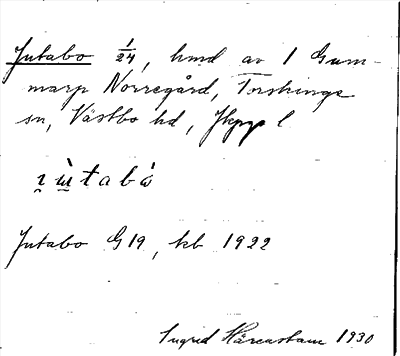 Jutabo 1/24, hmd av 1 Gum-
marp Norregård, Torskinge
sn, Västbo hd, Jkpgs l
Jutabo G19, kb 1922
Ingrid 1930